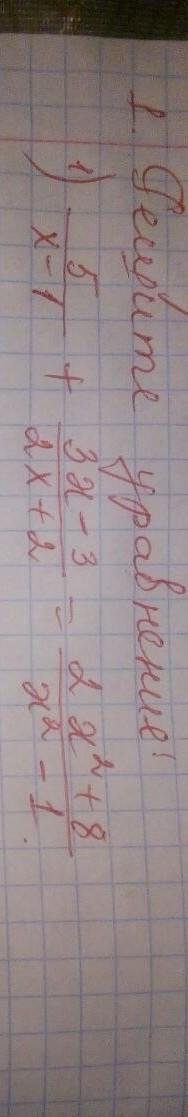 1. Решите уравнение:
1) 5/(x-1) + (3x-3)/(2x+2) = (2x²+8)/(x²-1).